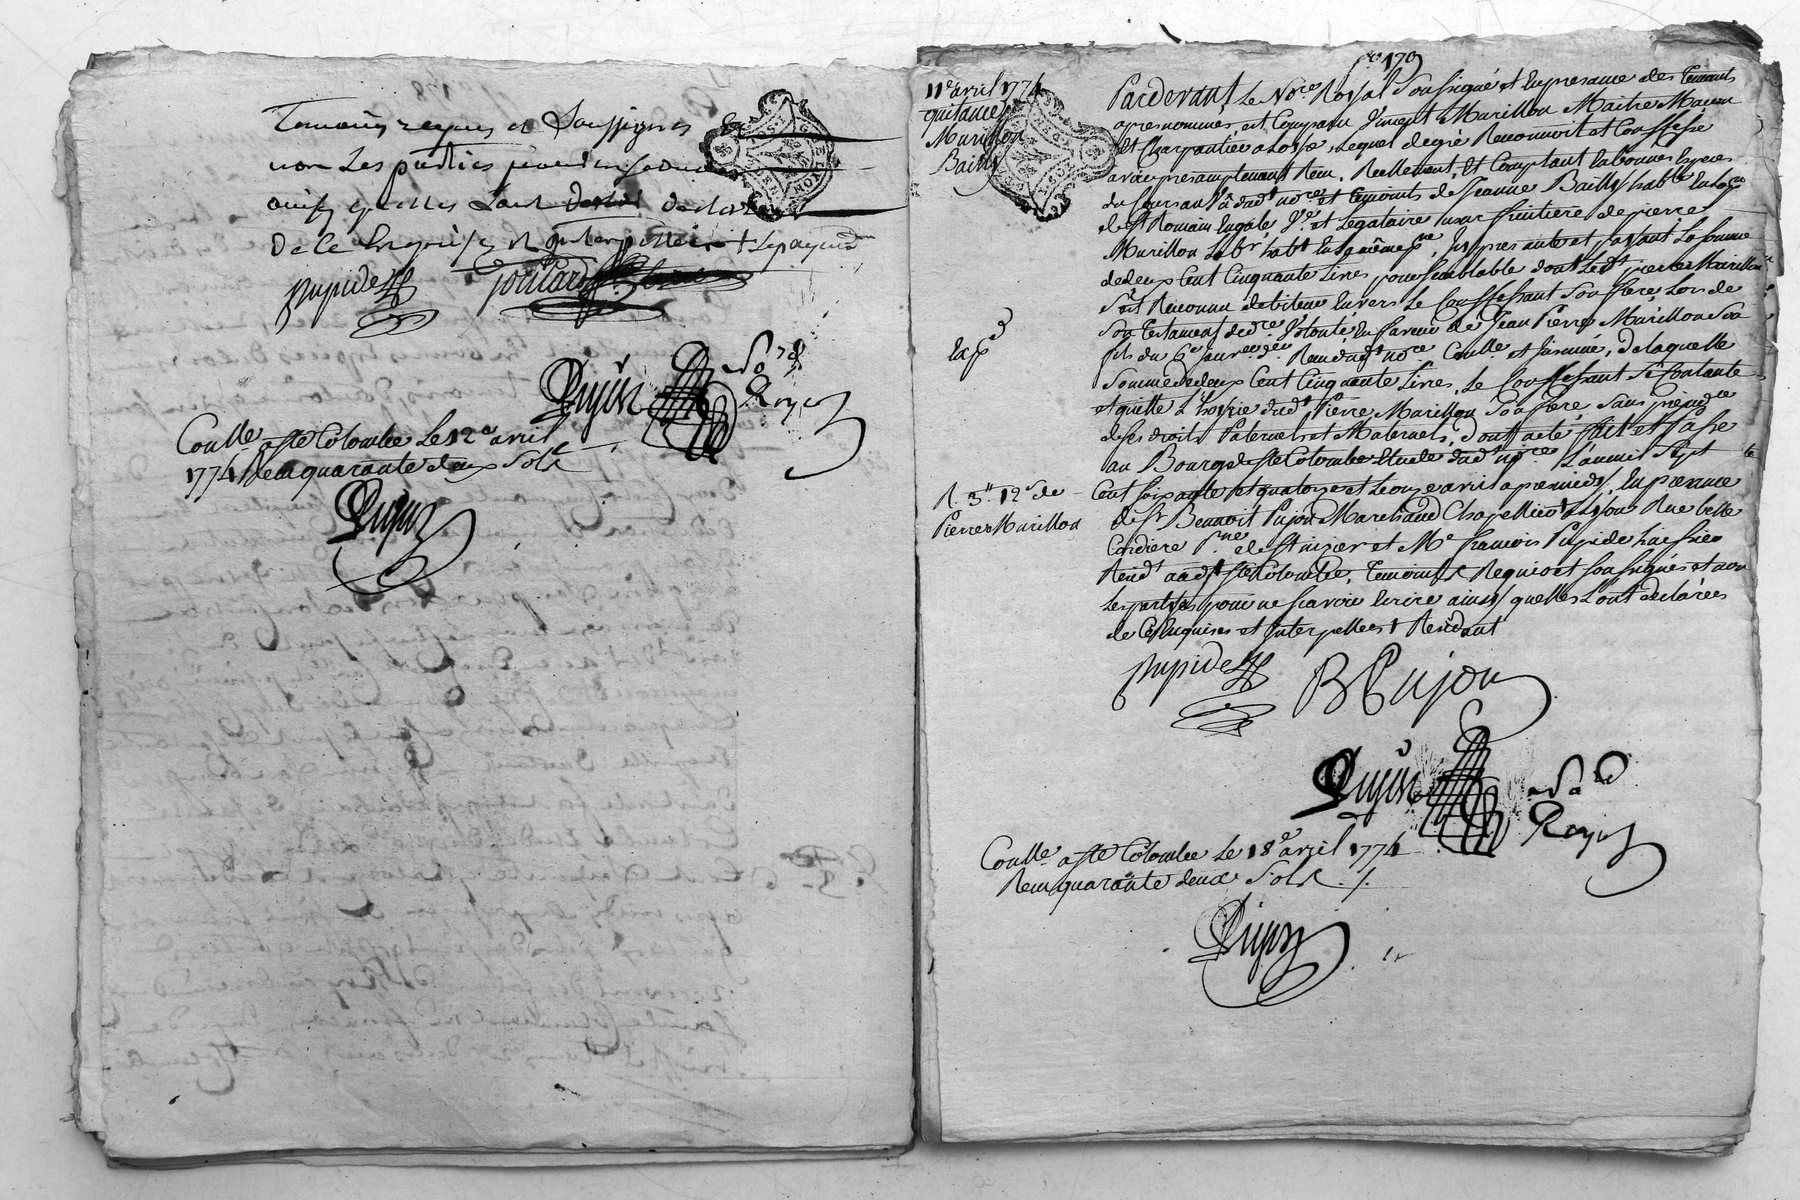 Temoins requis et Soussignés Et
non Les parties pour
ainsy qu'elles L'ont declaré
De ce Enquises et interpellées + Le payend
pupide
Dujin No.re
Royal
Con.lle a Ste Colombe Le 12e avril
1774 Reçu quarante deux Sols
Dujin
170
11e avril 1774
quitance
Murillon
Bailly
Pardevant Le No.re Royal Soussigné et En presance des Temoins
apres nommés, est Comparu Vincent Murillon Maitre Maçon
Et Charpantier a Loyse, Lequel de gré Reconnoit et Confesse
avoir presantement Reçu, Reellement, Et Comptant En bonnes Especes
du Cours au Vû dud.t no.re et temoins de Jeanne Bailly hab.te En La p.sse
de St Romain Engales V.e et Legataire usufruitiere de pierre
Murillon Lab.r hab.t En La même p.sse, Icy presante et payant La Somme
de deux Cent Cinquante Livres pour Semblable dont Led.t pierre Murillon
S'est Reconnu debiteur Envers Le Confessant Son frere, Lors de
Son Testament de d.re Volonté, En faveur de Jean Pierre Murillon Son
fils du 6e Janv.er d.er Reçu dud.t no.re Con.llé et Insinué, De laquelle
Somme de deux Cent Cinquante Livres, Le Confessant Se Contante
et quitte L'hoirie dud.t Pierre Murillon Son frere, Sans prejud.ce
de Ses droits Paternels et Maternels, dont acte fait et Passé
au Bourg de Ste Colombe Etude dud.t no.re L'an mil Sept
Cent soixante et quatorze et Le onze avril apres midy, En presence
de Sr Bennoit Pujon Marchand Chapellier a Lyon Rue belle
Cordiere p.sse de St nizier et Me francois Pupide huissier
Resid.t aud.t Ste Colombe, Temoins Requis et Soussignés et non
Les parties pour ne Scavoir Ecrire ainsy quelles L'ont declarées
de Ce Enquises et Interpellees + Residant
R 3# 12s de
Pierre Murillon
pupide
B Pujon
Dujin No.re
Royal
Con.lle a Ste Colombe Le 18e avril 1774
Reçu quarante deux Sols ./.
Dujin